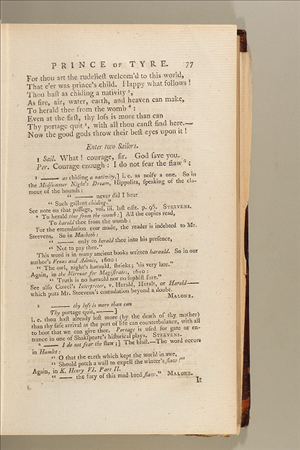 PRINCE of TYRE. 77
For thou art the rudeliest welcom'd to this world,
That e'er was prince's child. Happy what follows!
Thou hast as chiding a nativity ¹,
As fire, air, water, earth, and heaven can make,
To herald thee from the womb ²:
Even at the first, thy loss is more than can
Thy portage quit ³, with all thou canst find here.—
Now the good gods throw their best eyes upon it!
Enter two Sailors.
1 Sail. What! courage, sir. God save you.
Per. Courage enough: I do not fear the flaw ⁴;
¹ —— as chiding a nativity,] i. e. as noisy a one. So in
the Midsummer Night's Dream, Hippolita, speaking of the cla-
mour of the hounds:
" —— never did I hear
" Such gallant chiding."
See note on that passage, vol. iii. last edit. p. 96. STEEVENS.
² To herald thee from the womb:] All the copies read,
To harold thee from the womb:
For the emendation now made, the reader is indebted to Mr.
Steevens. So in Macbeth:
" —— only to herald thee into his presence,
" Not to pay thee."
This word is in many ancient books written harauld. So in our
author's Venus and Adonis, 1600:
" The owl, night's harauld, shrieks; 'tis very late."
Again, in the Mirrour for Magistrates, 1610:
" Truth is no harauld nor no sophist sure."
See also Cowel's Interpreter, v. Herald, Heralt, or Harold—
which puts Mr. Steevens's emendation beyond a doubt.
MALONE.
³ —— thy loss is more than can
Thy portage quit, ——]
i. e. thou hast already lost more (by the death of thy mother)
than thy safe arrival at the port of life can counterbalance, with all
to boot that we can give thee. Portage is used for gate or en-
trance in one of Shakspeare's historical plays. STEEVENS.
⁴ —— I do not fear the flaw;] The blast.—The word occurs
in Hamlet:
" O that the earth which kept the world in awe,
" Should patch a wall to expell the winter's flaw!"
Again, in K. Henry VI. Part II.
" —— the fury of this mad-bred flaw." MALONE.
It